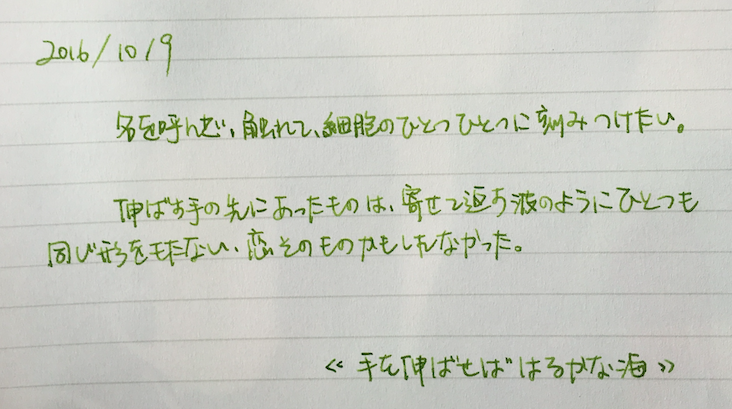 2016/10/9
名を呼んで、触れて、細胞のひとつひとつに刻みつけたい。
伸ばす手の先にあったものは、寄せて返す波のようにひとつも
同じ形をもたない、恋そのものかもしれなかった。
≪手を伸ばせばはるかな海≫